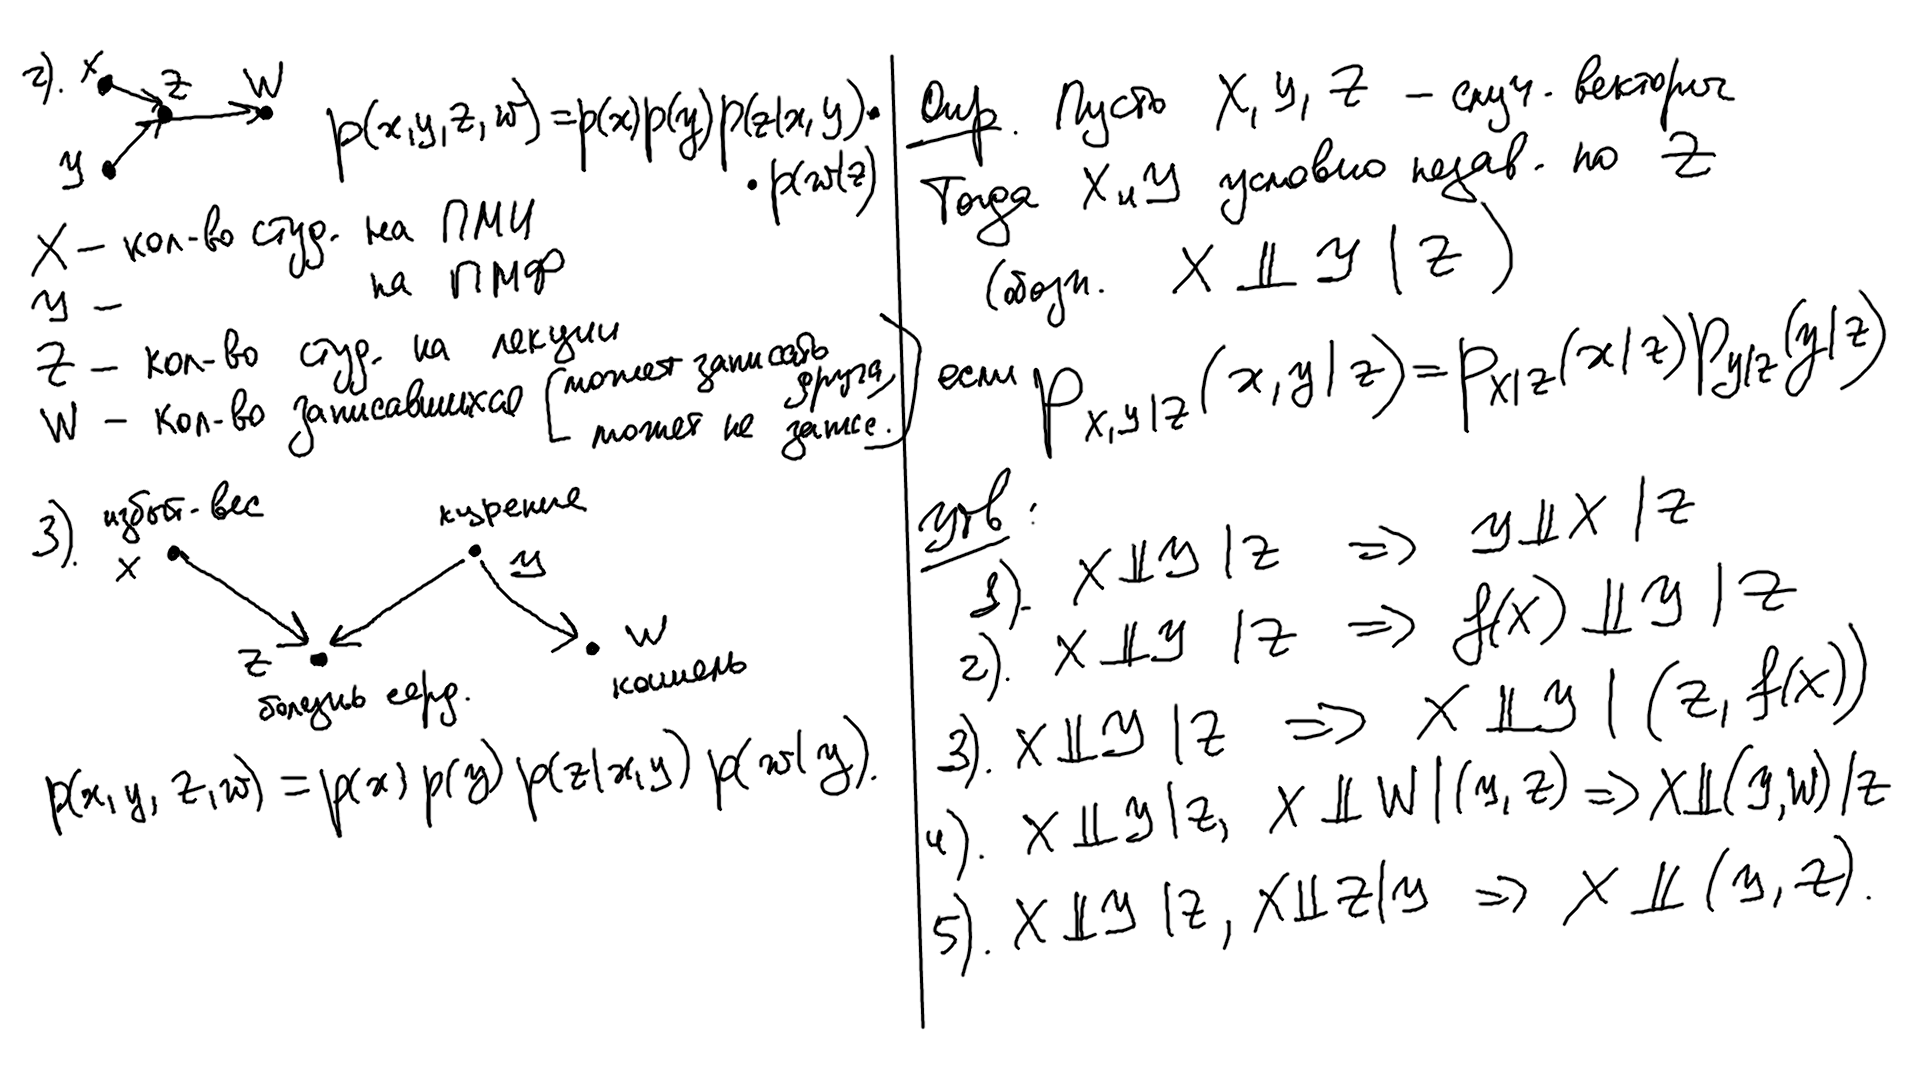 2). X Z W
y
p(x,y,z,w) = p(x) p(y) p(z|x,y) ·
· p(w|z)
X – кол-во студ. на ПМИ
y – на ПМФ
Z – кол-во студ. на лекции
W – кол-во записавшихся [может записать друга,
может не запис.)
3). избыт. вес курение
X y
Z W
болезнь серд. кашель
p(x,y,z,w) = p(x) p(y) p(z|x,y) p(w|y).
Опр. Пусть X, y, Z – случ. векторы
Тогда X и y условно незав. по Z
(обозн. X ⫫ y | Z)
если p_{X,y|Z}(x,y|z) = p_{X|Z}(x|z) p_{y|Z}(y|z)
Утв:
1). X ⫫ y | Z => y ⫫ X | Z
2). X ⫫ y | Z => f(X) ⫫ y | Z
3). X ⫫ y | Z => X ⫫ y | (Z, f(X))
4). X ⫫ y | Z, X ⫫ W | (y, Z) => X ⫫ (y, W) | Z
5). X ⫫ y | Z, X ⫫ Z | y => X ⫫ (y, Z).